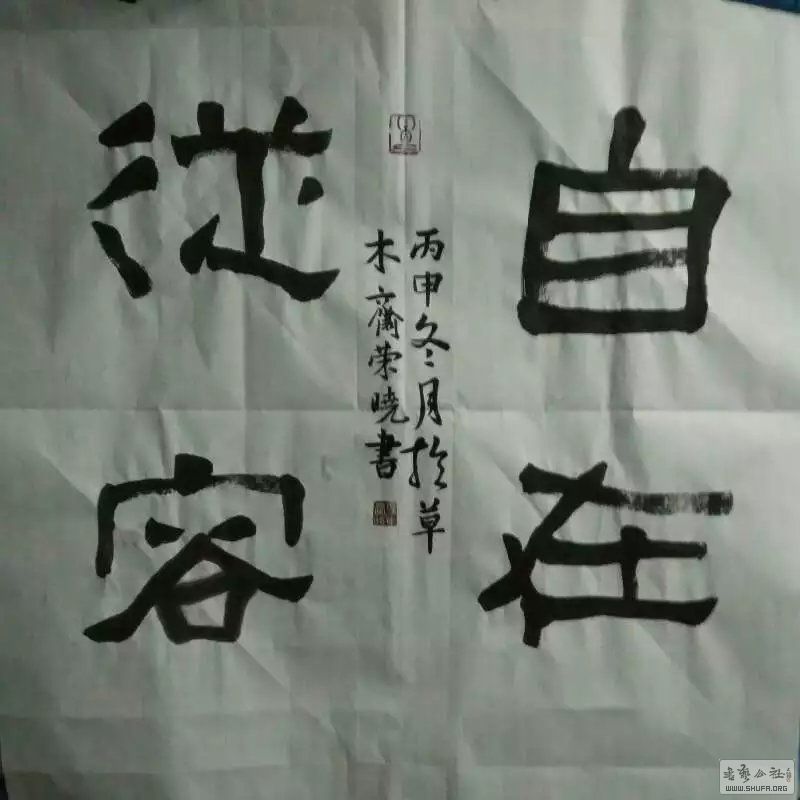 自在
從容
丙申冬月於草
木齋荣曉書
書艺公社
WWW.SHUFA.ORG